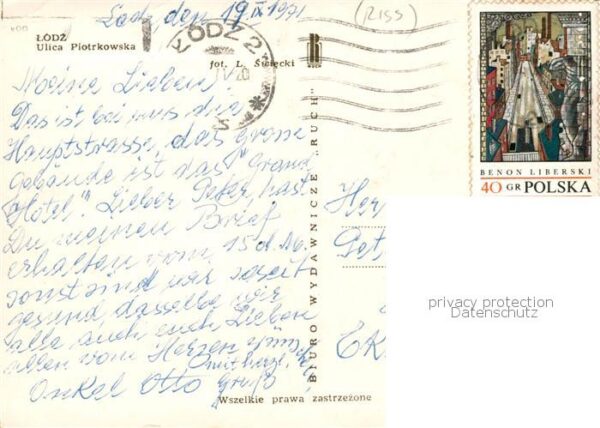 Lodz, den 19 IX 1971
(RISS)
ŁÓDŹ
Ulica Piotrkowska
fot. L. Święcki
ŁÓDŹ 2
Meine Lieben!
Das ist bei uns die
Hauptstrasse, das grosse
Gebäude ist das "Grand
Hotel". Lieber Peter, hast
Du meinen Brief
erhalten vom 15 d. M.
sonst sind wir soweit
gesund dasselbe wir
alle auch euch Lieben
allen vom Herzen
Onkel Otto Gruß
BIURO WYDAWNICZE „RUCH"
Wszelkie prawa zastrzeżone
Her
Pet
BENON LIBERSKI
40 GR POLSKA
privacy protection
Datenschutz